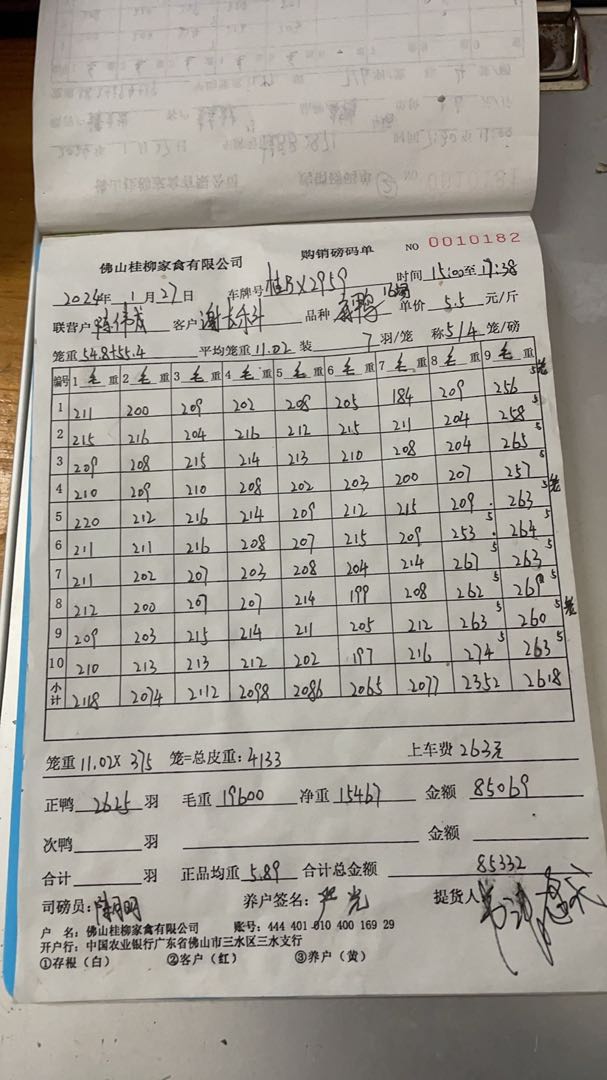 佛山桂柳家禽有限公司 购销磅码单 NO 0010182
2024年 1月27日 车牌号 桂BX2959 时间 15:00至17:38
联营户 客户 品种 单价 5.5 元/斤
笼重 54.8+55.4 平均笼重 11.02 装 7 羽/笼 称 5/4 笼/磅
编号 1 毛 重 2 毛 重 3 毛 重 4 毛 重 5 毛 重 6 毛 重 7 毛 重 8 毛 重 9 毛 重 5笼
1 211 200 209 202 208 205 184 209 256
2 215 216 204 216 212 215 211 204 258 5
3 209 208 215 214 213 210 208 204 265 5
4 210 209 210 208 202 203 200 207 257 5
5 220 212 216 214 209 212 215 209 263 5笼
6 211 211 216 208 207 215 209 253 5 264 5
7 211 202 207 203 208 204 214 267 5 263 5
8 212 200 207 207 214 199 208 262 5 269 5
9 209 203 215 214 211 205 212 263 5 260 5笼
10 210 213 213 212 202 197 216 274 5 263 5
小计 2118 2074 2112 2098 2086 2065 2077 2352 2618
笼重 11.02X 375 笼=总皮重: 4133 上车费 263元
正鸭 2625 羽 毛重 19600 净重 15467 金额 85069
次鸭 羽 金额
合计 羽 正品均重 5.89 合计总金额 85332
司磅员: 养户签名: 提货人
户 名: 佛山桂柳家禽有限公司 账号: 444 401 010 400 169 29
开户行: 中国农业银行广东省佛山市三水区三水支行
①存根（白） ②客户（红） ③养户（黄）